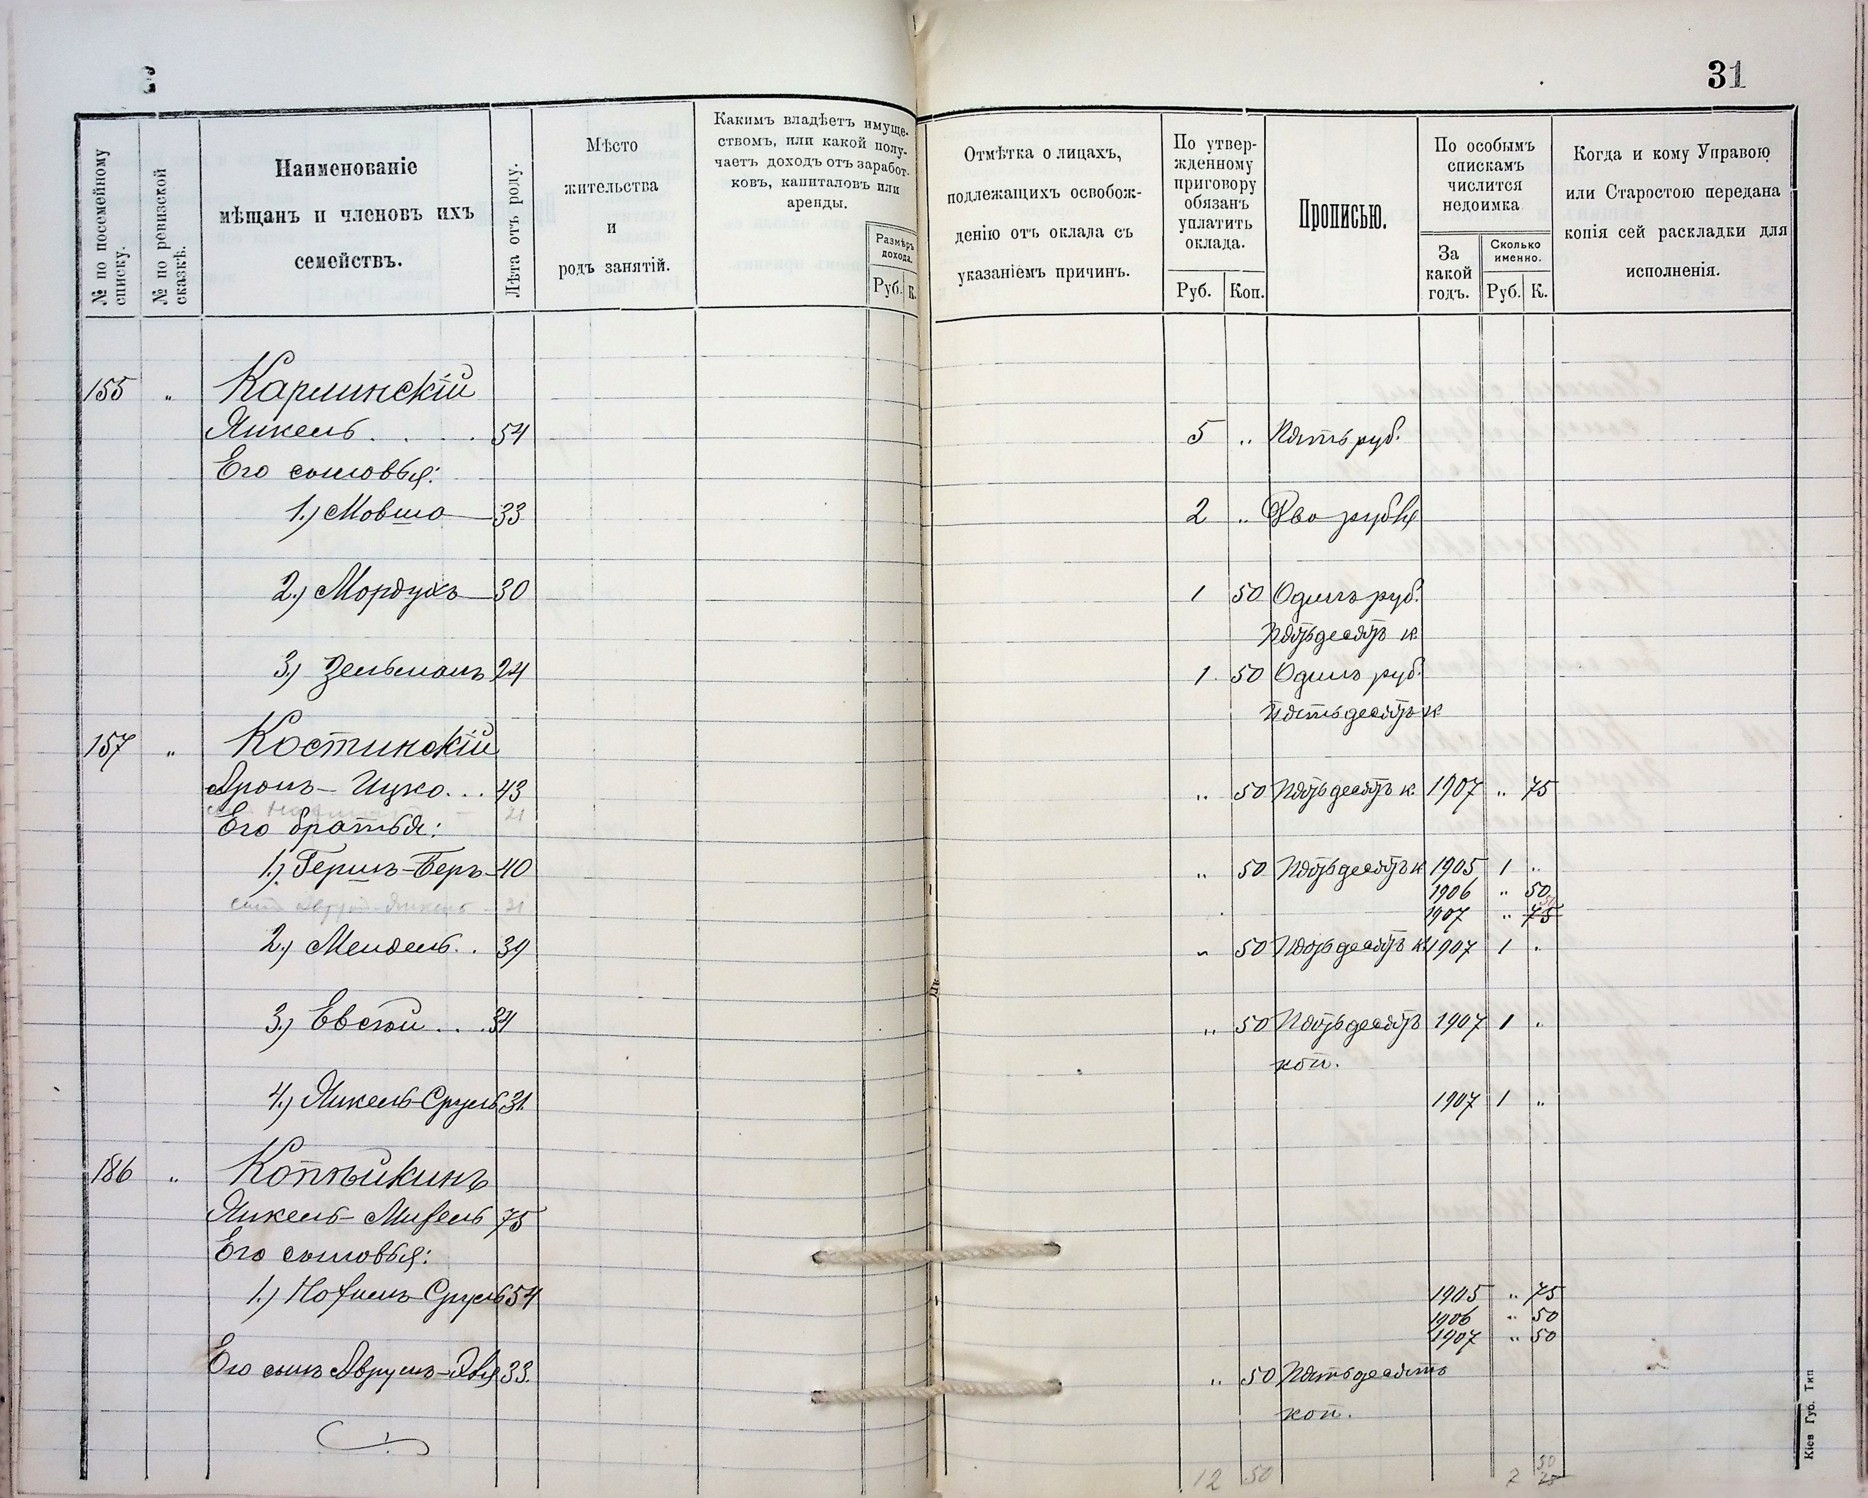 31
№ по посемейному списку.
№ по ревизской сказкѣ.
Наименованіе
мѣщанъ и членовъ ихъ
семействъ.
Лѣта отъ роду.
Мѣсто
жительства
и
родъ занятій.
Какимъ владѣетъ имуще-
ствомъ, или какой полу-
чаетъ доходъ отъ заработ-
ковъ, капиталовъ или
аренды.
Размѣръ
дохода.
Руб. К.
Отмѣтка о лицахъ,
подлежащихъ освобож-
денію отъ оклада съ
указаніемъ причинъ.
По утвер-
жденному
приговору
обязанъ
уплатить
оклада.
Руб. Коп.
Прописью.
По особымъ
спискамъ
числится
недоимка
За
какой
годъ.
Сколько
именно.
Руб. К.
Когда и кому Управою
или Старостою передана
копія сей раскладки для
исполненія.
155 " Карлинскій
Янкель . . . . 54 5 " Пять руб.
Его сыновья:
1.) Мовша 33 2 " Два рубля
2.) Мордухъ 30 1 50 Одинъ руб.
Пятьдесятъ к
3.) Зельманъ 24 1 50 Одинъ руб.
Пятьдесятъ к
157 " Костинскій
Аронъ-Ицко . . . 43 " 50 Пятьдесятъ к. 1907 " 75
21
Его братья:
1.) Гершъ-Беръ 40 " 50 Пятьдесятъ к 1905 1 "
1906 " 50
сынъ Янкель 21 1907 " 75
2.) Мендель . . 39 " 50 Пятьдесятъ к 1907 1 "
3.) Евсей . . . 34 " 50 Пятьдесятъ 1907 1 "
коп.
4.) Янкель-Сруль 31. 1907 1 "
186 " Копѣйкинъ
Янкель- 75
Его сыновья:
1.) Нохимъ-Сруль 54 1905 " 75
1906 " 50
1907 " 50
Его сынъ Аврумъ- 33. " 50 Пятьдесятъ
коп.
12 50 7 50
Кіев Губ. Тип